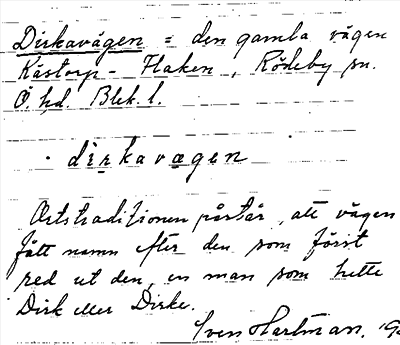 Dirkavägen = den gamla vägen
Kästorp - Flaken, Rödeby sn.
Ö hd. Blek. l.
dirkavagen
Ortstraditionen påstår, att vägen
fått namn efter den som först
red ut den, en man som hette
Dirk eller Dirke.
Sven Hartman. 19